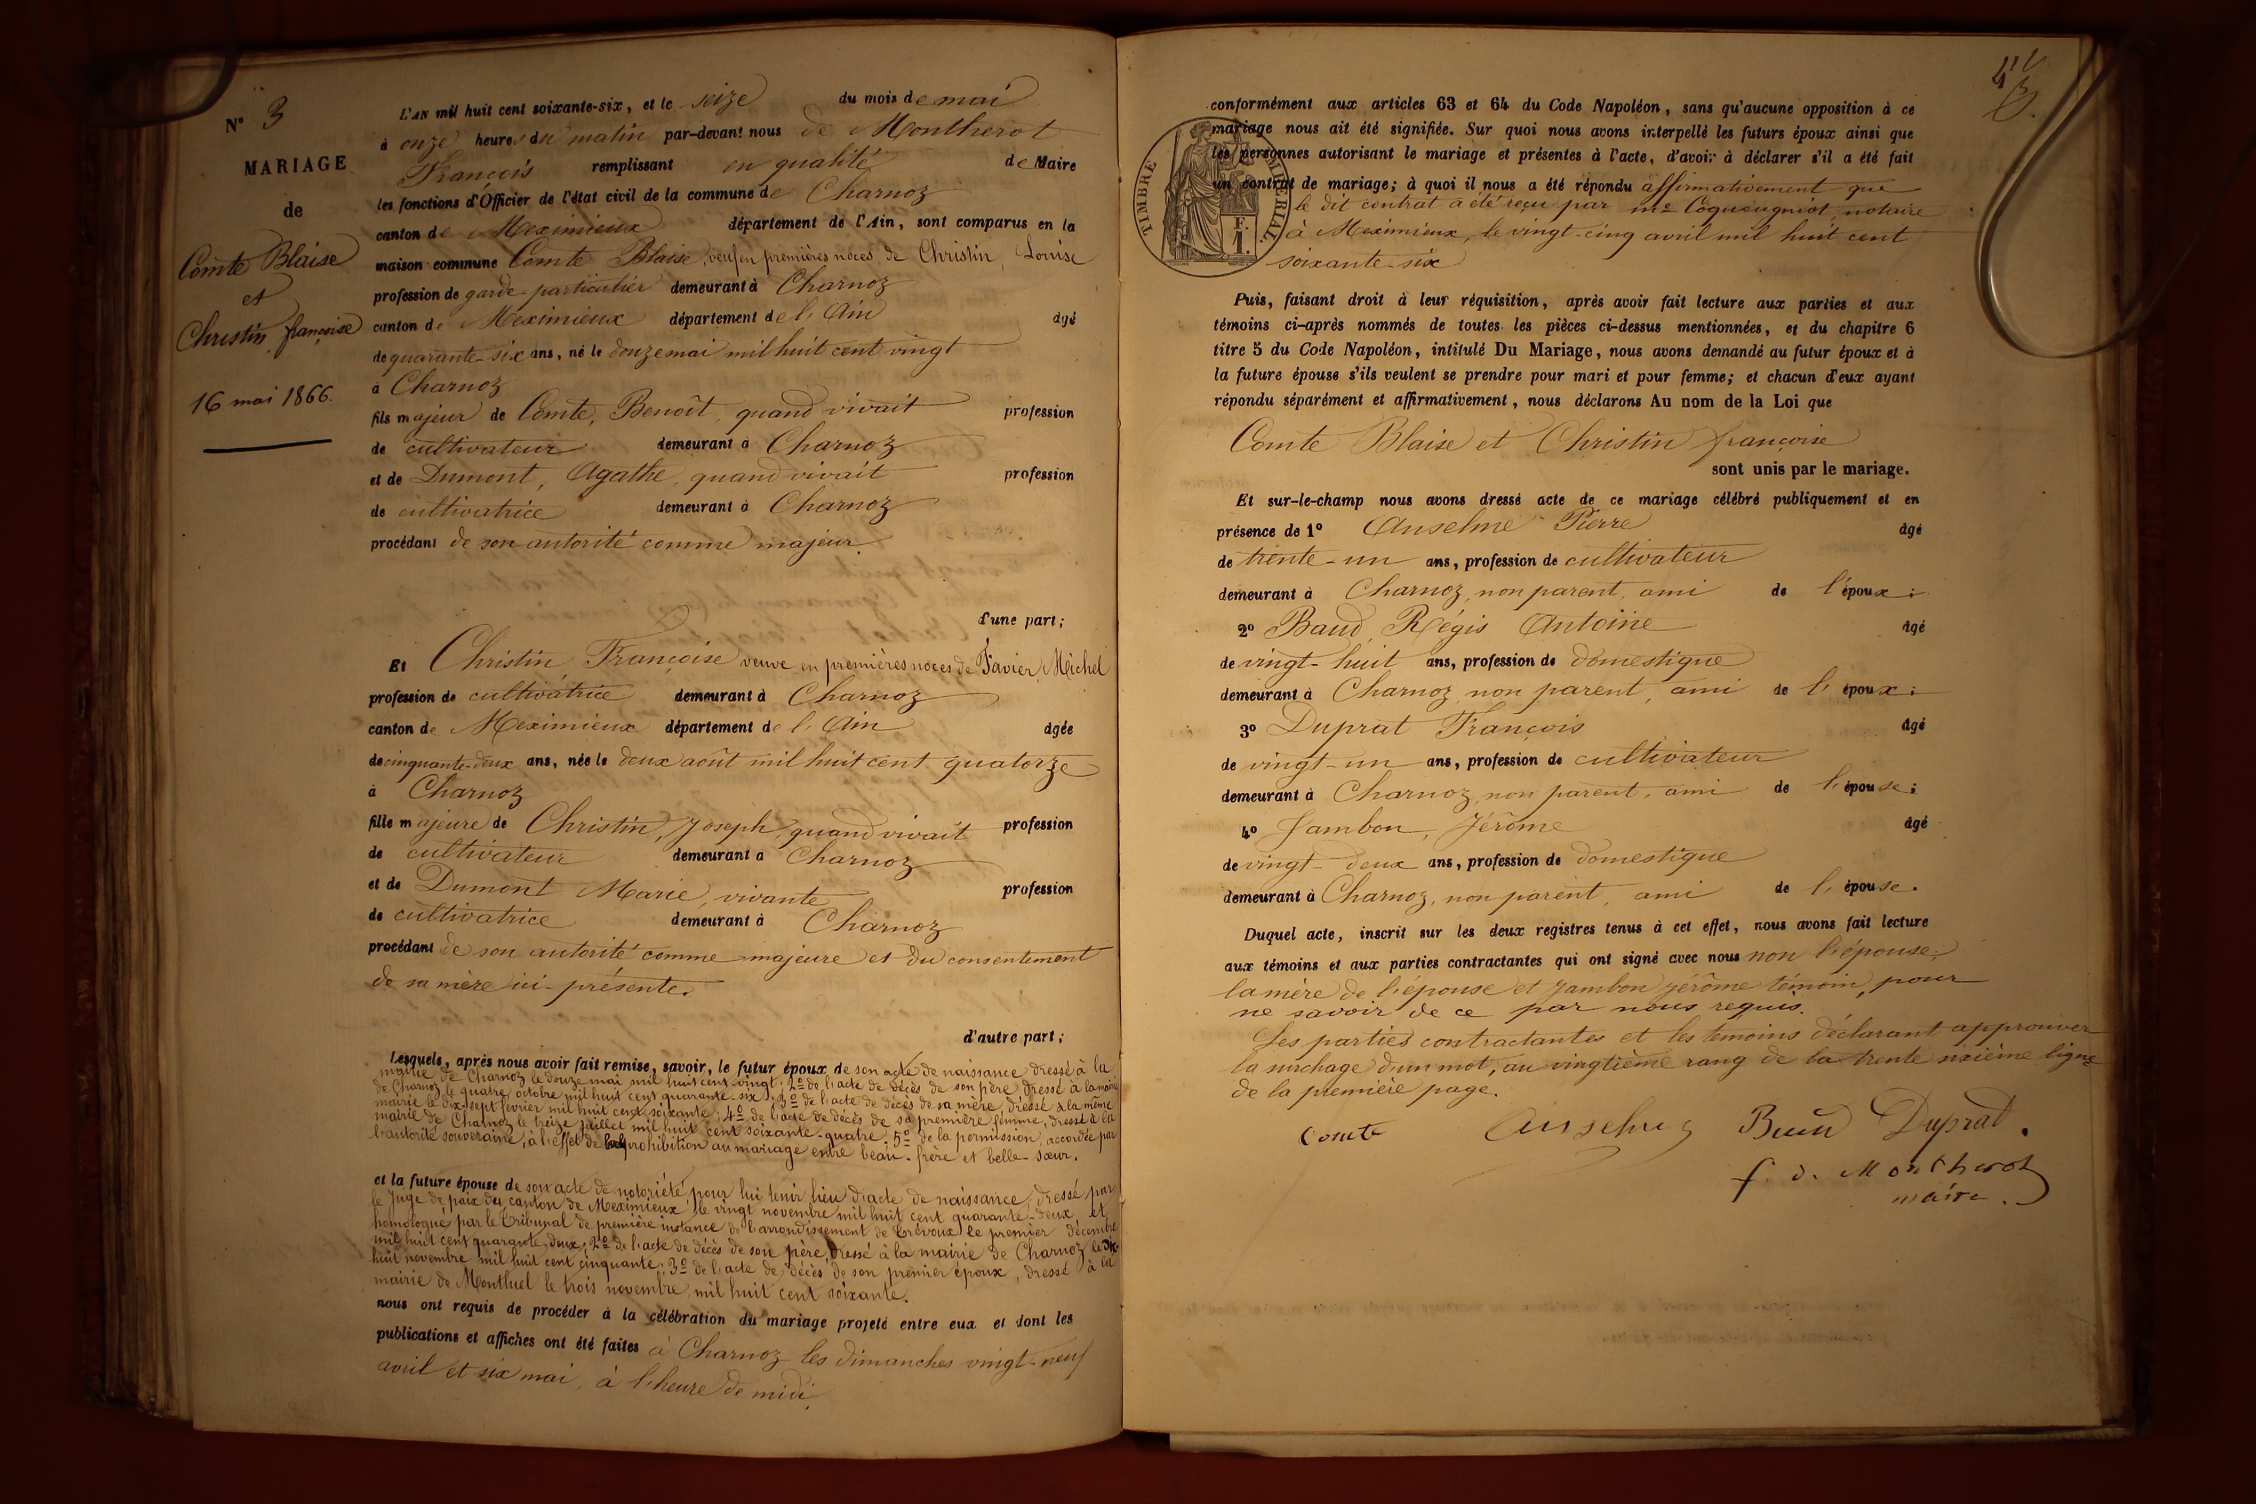 N° 3
MARIAGE
de
Comte Blaise
et
Christin françoise
16 mai 1866.
L'AN mil huit cent soixante-six, et le seize du mois de mai
à onze heures du matin par-devant nous de Montherot
François remplissant en qualité de Maire
les fonctions d'Officier de l'état civil de la commune de Charnoz
canton de Meximieux département de l'Ain, sont comparus en la
maison commune Comte Blaise, veuf en premières noces de Christin, Louise
profession de garde-particulier demeurant à Charnoz
canton de Meximieux département de l'Ain âgé
de quarante-six ans, né le douze mai mil huit cent vingt
à Charnoz
fils majeur de Comte, Benoît, quand vivait profession
de cultivateur demeurant à Charnoz
et de Dumont, Agathe, quand vivait profession
de cultivatrice demeurant à Charnoz
procédant de son autorité comme majeur.
d'une part;
Et Christin Françoise veuve en premières noces de Favier, Michel
profession de cultivatrice demeurant à Charnoz
canton de Meximieux département de l'Ain âgée
de cinquante-deux ans, née le deux août mil huit cent quatorze
à Charnoz
fille majeure de Christin, Joseph, quand vivait profession
de cultivateur demeurant à Charnoz
et de Dumont Marie, vivante profession
de cultivatrice demeurant à Charnoz
procédant de son autorité comme majeure et du consentement
de sa mère ici-présente.
d'autre part;
Lesquels, après nous avoir fait remise, savoir, le futur époux de son acte de naissance dressé à la
mairie de Charnoz le douze mai mil huit cent vingt; 2° de l'acte de décès de son père dressé à la mairie
de Charnoz le quatre octobre mil huit cent quarante-six; 3° de l'acte de décès de sa mère, dressé à la même
mairie le dix-sept février mil huit cent soixante; 4° de l'acte de décès de sa première femme, dressé à la
mairie de Charnoz le treize juillet mil huit cent soixante-quatre; 5° de la permission, accordée par
l'autorité souveraine, à l'effet de prohibition au mariage entre beau-frère et belle-sœur.
et la future épouse de son acte de notoriété, pour lui tenir lieu d'acte de naissance, dressé par
le Juge de paix du canton de Meximieux, le vingt novembre mil huit cent quarante-deux et
homologué par le tribunal de première instance de l'arrondissement de Trévoux le premier décembre
mil huit cent quarante-deux; 2° de l'acte de décès de son père, dressé à la mairie de Charnoz le dix-
huit novembre mil huit cent cinquante; 3° de l'acte de décès de son premier époux, dressé à la
mairie de Montluel le trois novembre mil huit cent soixante.
nous ont requis de procéder à la célébration du mariage projeté entre eux et dont les
publications et affiches ont été faites à Charnoz les dimanches vingt-neuf
avril et six mai, à l'heure de midi.
TIMBRE IMPÉRIAL
1 F.
conformément aux articles 63 et 64 du Code Napoléon, sans qu'aucune opposition à ce
mariage nous ait été signifiée. Sur quoi nous avons interpellé les futurs époux ainsi que
les personnes autorisant le mariage et présentes à l'acte, d'avoir à déclarer s'il a été fait
un contrat de mariage; à quoi il nous a été répondu affirmativement que
le dit contrat a été reçu par me Coqueugniot notaire
à Meximieux, le vingt-cinq avril mil huit cent
soixante-six
Puis, faisant droit à leur réquisition, après avoir fait lecture aux parties et aux
témoins ci-après nommés de toutes les pièces ci-dessus mentionnées, et du chapitre 6
titre 5 du Code Napoléon, intitulé Du Mariage, nous avons demandé au futur époux et à
la future épouse s'ils veulent se prendre pour mari et pour femme; et chacun d'eux ayant
répondu séparément et affirmativement, nous déclarons Au nom de la Loi que
Comte Blaise et Christin françoise
sont unis par le mariage.
Et sur-le-champ nous avons dressé acte de ce mariage célébré publiquement et en
présence de 1° Anselme Pierre âgé
de trente-un ans, profession de cultivateur
demeurant à Charnoz, non parent, ami de l'époux;
2° Baud, Régis Antoine âgé
de vingt-huit ans, profession de domestique
demeurant à Charnoz non parent, ami de l'époux;
3° Duprat François âgé
de vingt-un ans, profession de cultivateur
demeurant à Charnoz, non parent, ami de l'épouse;
4° Jambon, Jérôme âgé
de vingt-deux ans, profession de domestique
demeurant à Charnoz, non parent, ami de l'épouse.
Duquel acte, inscrit sur les deux registres tenus à cet effet, nous avons fait lecture
aux témoins et aux parties contractantes qui ont signé avec nous non l'épouse,
la mère de l'épouse et Jambon jérôme témoin, pour
ne savoir de ce par nous requis.
Les parties contractantes et les témoins déclarant approuver
la surchage d'un mot, au vingtième rang de la trente ligne
de la première page.
Comte Anselme Baud Duprat.
f. d. Montherot
maire.